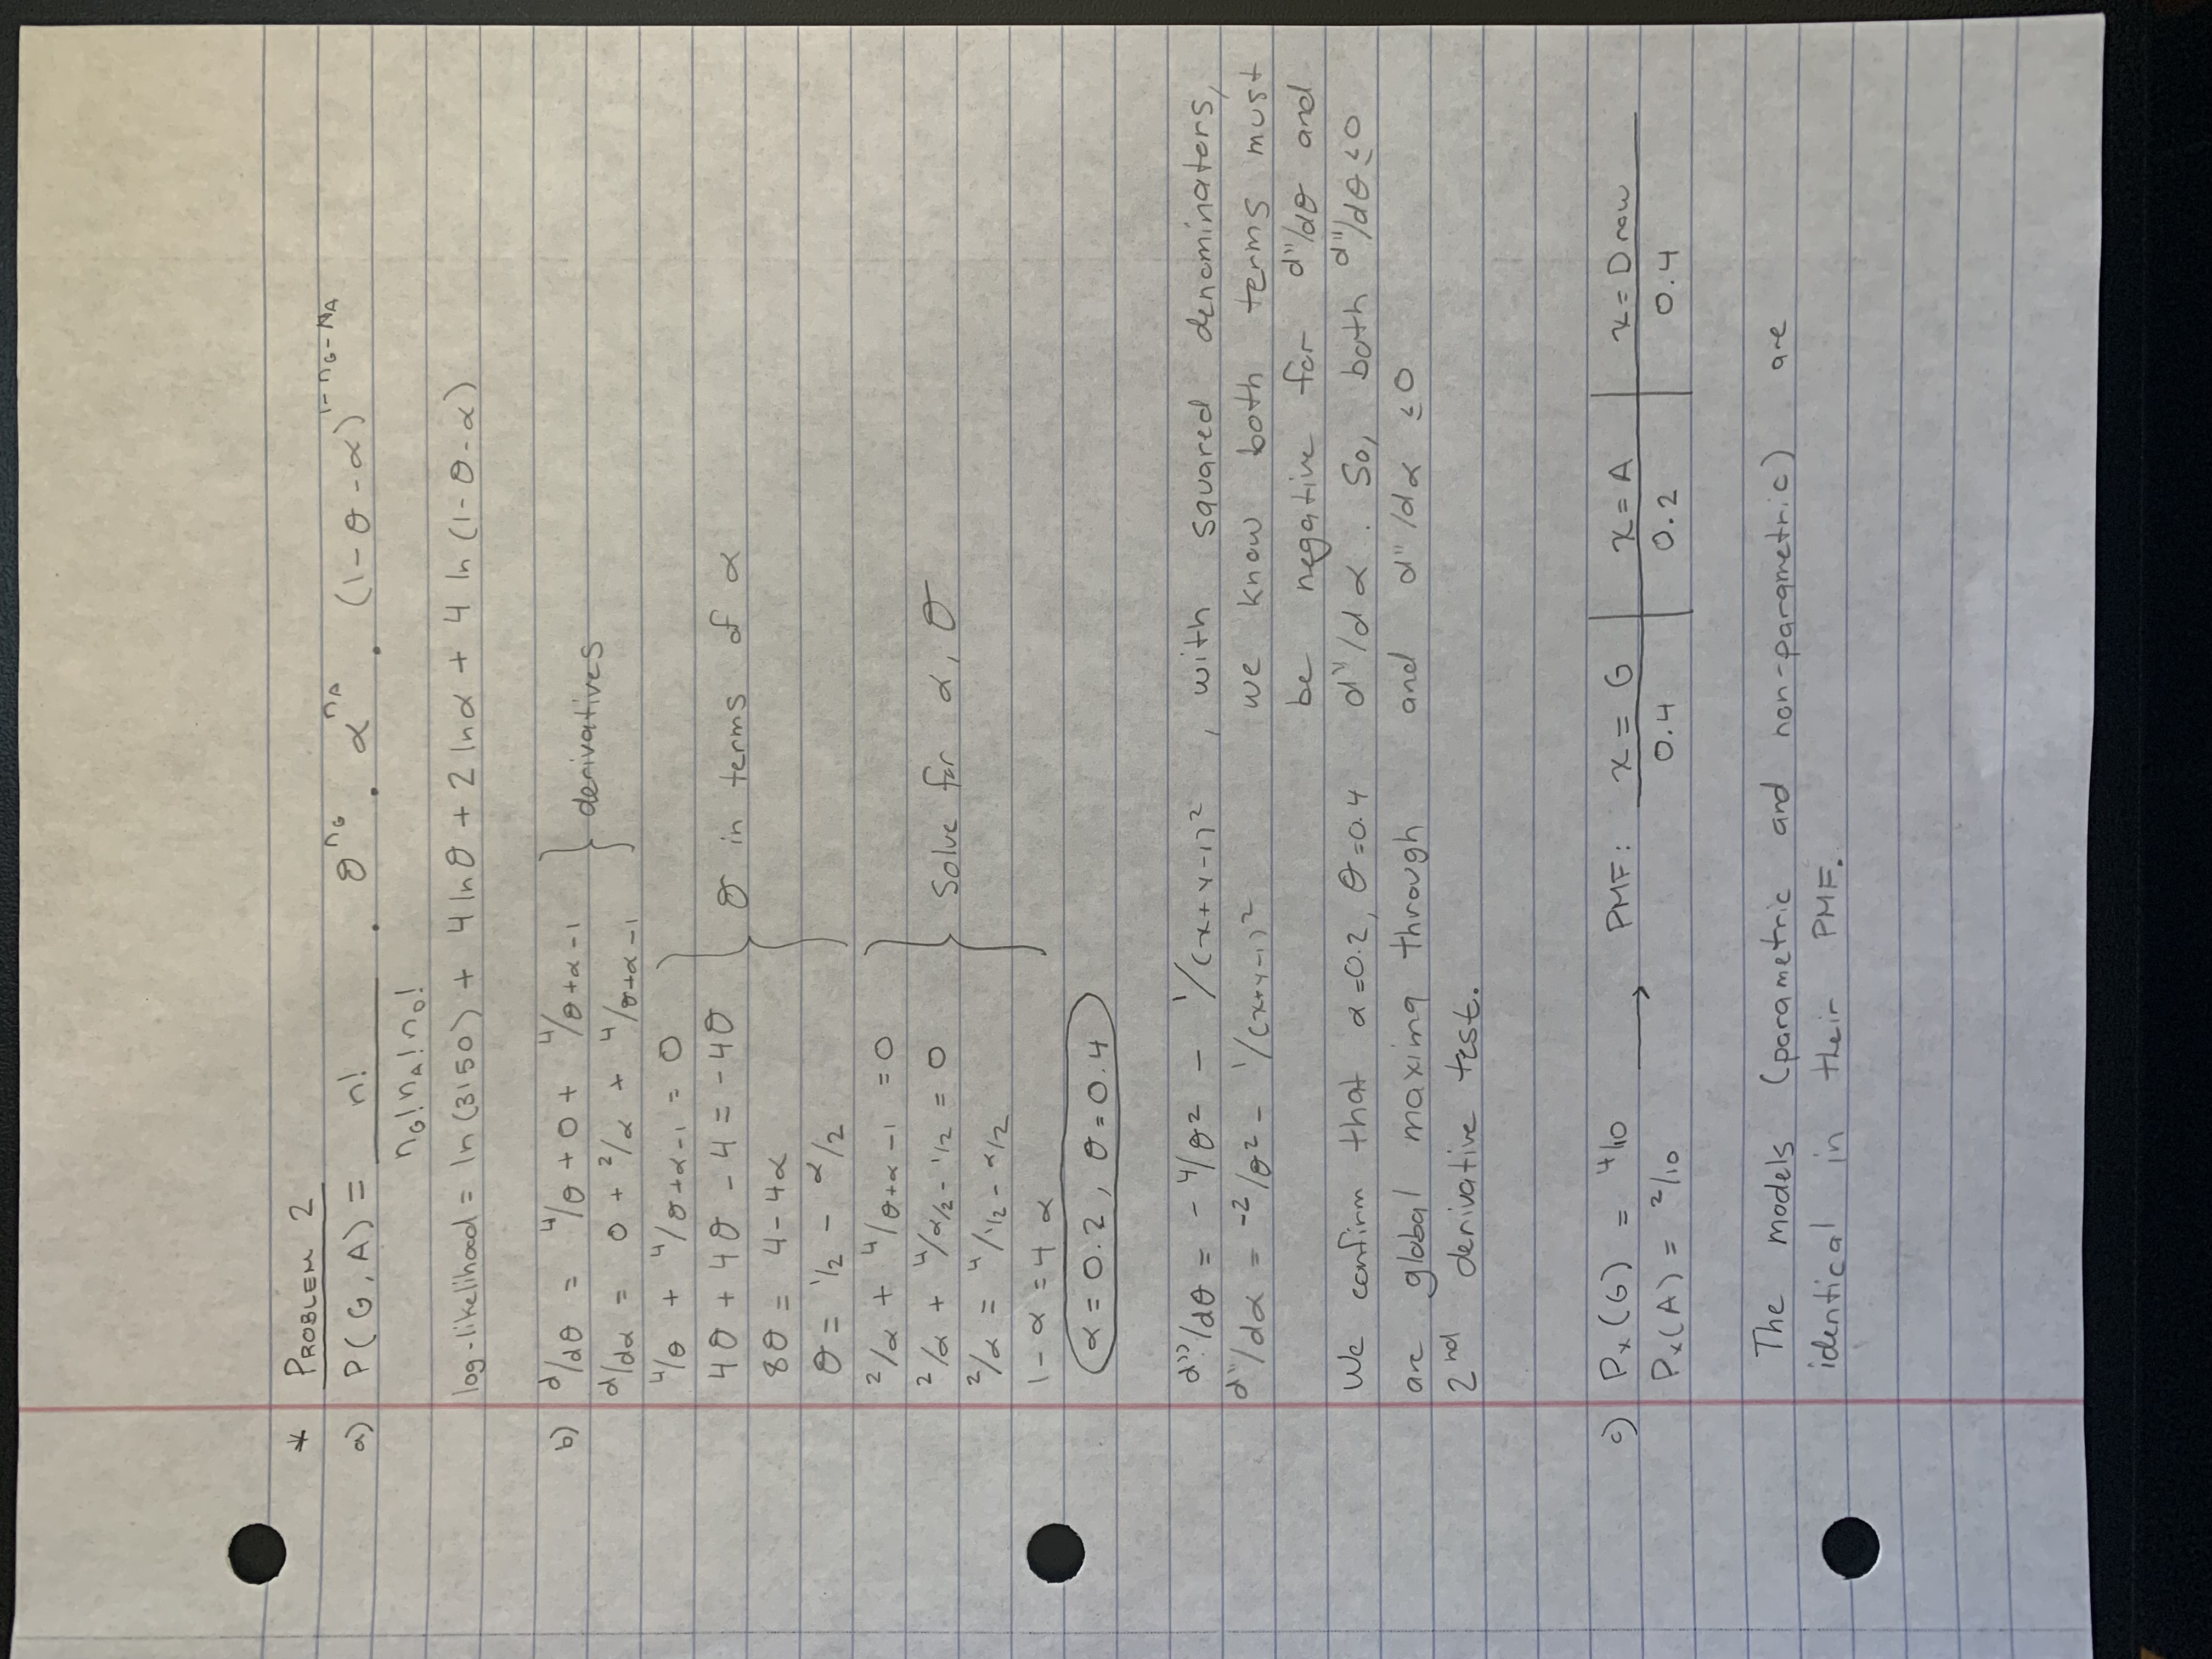 * PROBLEM 2
a) P(G, A) = n! / n_G! n_A! n_D! · θ^n_G · α^n_A · (1-θ-α)^1-n_G-n_A
log-likelihood = ln(3150) + 4 lnθ + 2 lnα + 4 ln (1-θ-α)
b) d/dθ = 4/θ + 0 + 4/θ+α-1
d/dα = 0 + 2/α + 4/θ+α-1
derivatives
4/θ + 4/θ+α-1 = 0
4θ + 4θ - 4 = -4θ
8θ = 4-4α
θ = 1/2 - α/2
θ in terms of α
2/α + 4/θ+α-1 = 0
2/α + 4/α/2-1/2 = 0
2/α = 4/1/2-α/2
1-α = 4α
Solve for α, θ
α = 0.2, θ = 0.4
d''/dθ = -4/θ² - 1/(x+y-1)²
d''/dα = -2/θ² - 1/(x+y-1)²
, with squared denominators,
we know both terms must
be negative for d''/dθ and
d''/dα. So, both d''/dθ ≤ 0
and d''/dα ≤ 0
We confirm that α=0.2, θ=0.4
are global maxima through
2nd derivative test.
c) Px(G) = 4/10 → PMF: x = G | x = A | x = Draw
Px(A) = 2/10 0.4 | 0.2 | 0.4
The models (parametric and non-parametric) are
identical in their PMF.